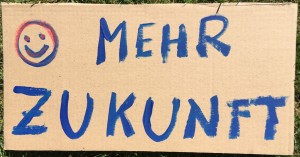 MEHR
ZUKUNFT